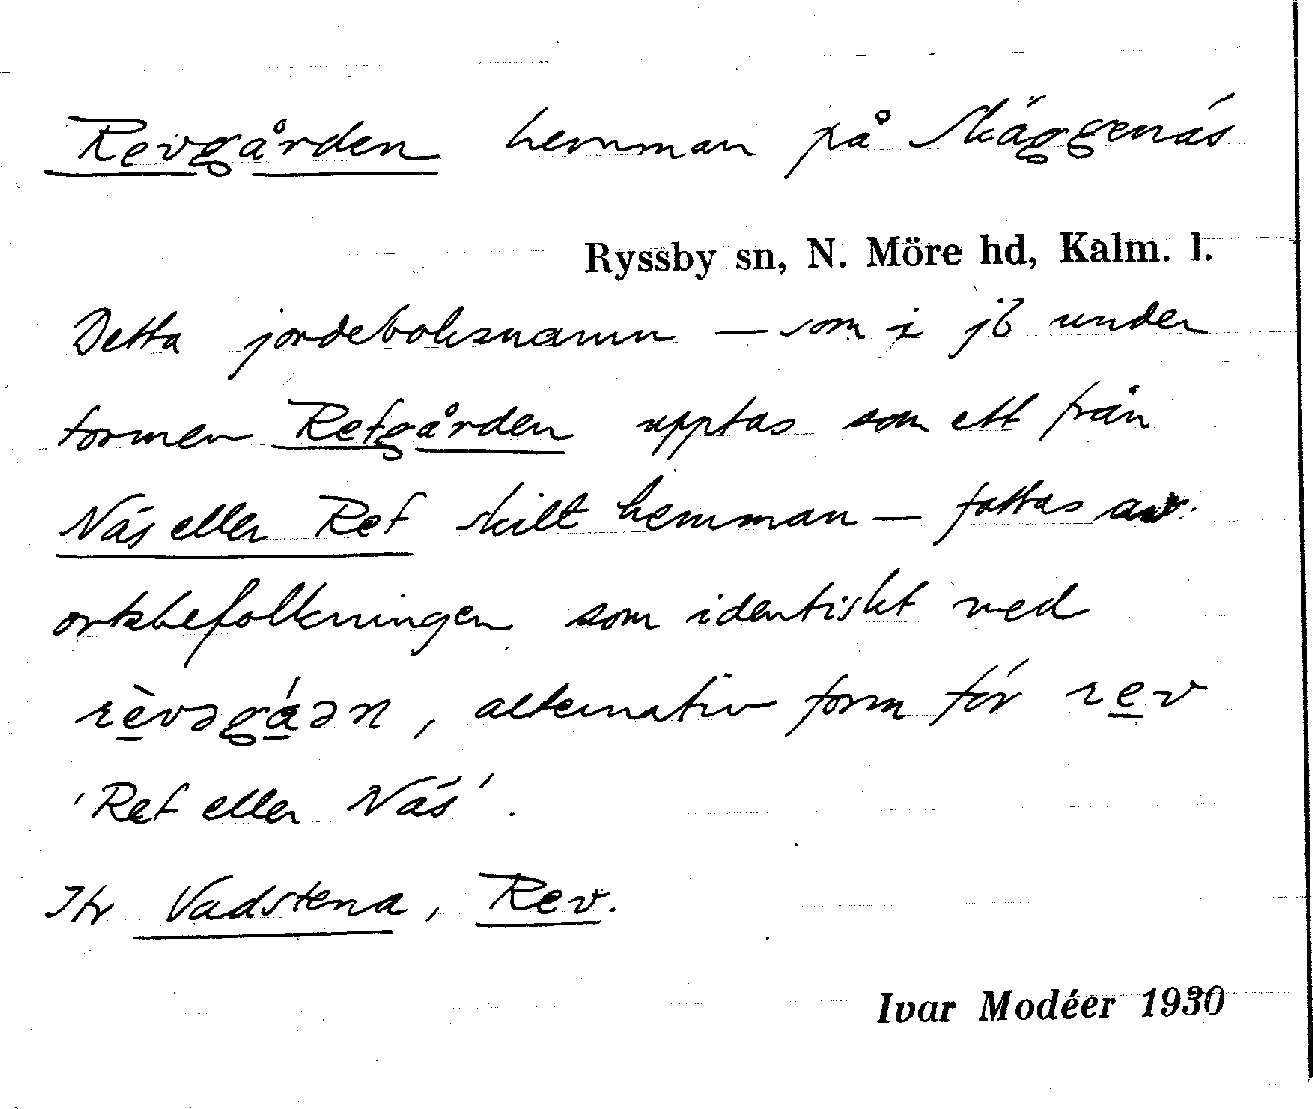 Revgården hemman på Skäggenäs
Ryssby sn, N. Möre hd, Kalm. l.
Detta jordeboksnamn — som i jb under
formen Refgården upptas som ett från
Näs eller Ref skilt hemman — fattas av
ortsbefolkningen som identiskt med
rèvəgá̱ən, alternativ form för re̱v
'Ref eller Näs'.
Jfr Vadstena, Rev.
Ivar Modéer 1930